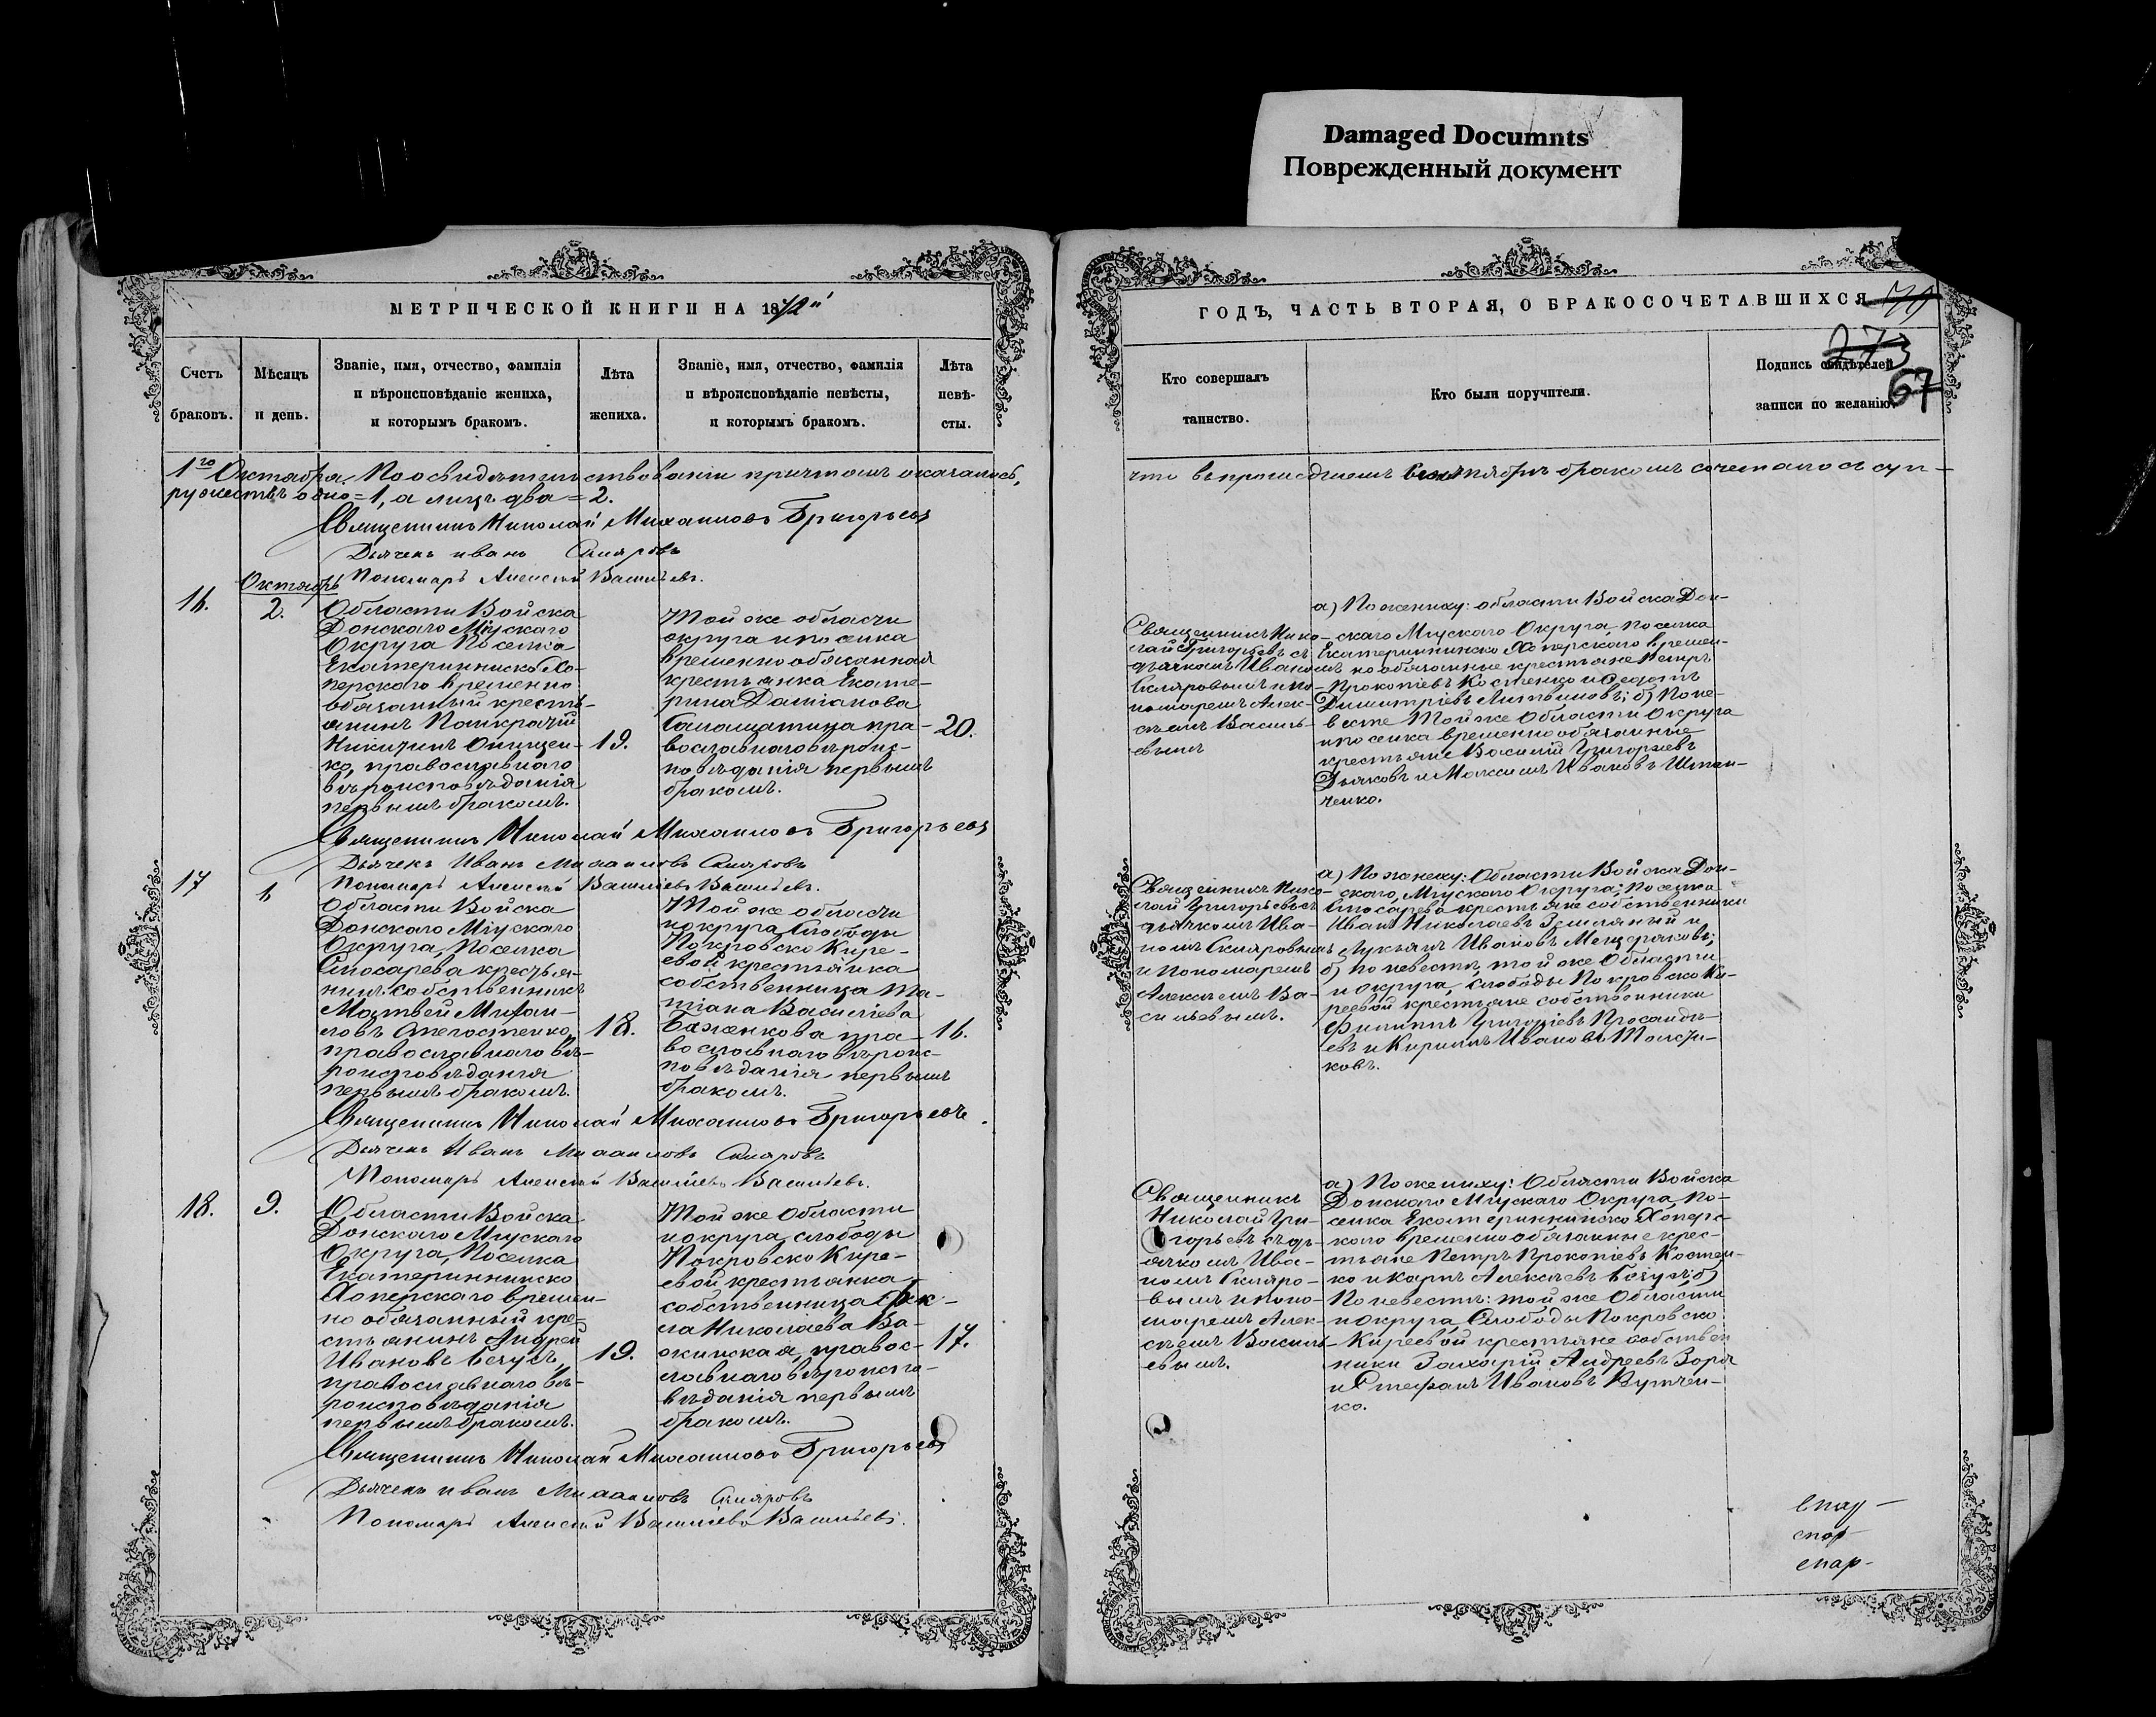 Damaged Documnts
Поврежденный документ
МЕТРИЧЕСКОЙ КНИГИ НА 1872й
Счетъ браковъ.
Мѣсяцъ и день.
Званіе, имя, отчество, фамилія
и вѣроисповѣданіе жениха,
и которымъ бракомъ.
Лѣта жениха.
Званіе, имя, отчество, фамилія
и вѣроисповѣданіе невѣсты,
и которымъ бракомъ.
Лѣта
невѣ-
сты.
1го Октября. По освидѣтельствованіи причтомъ оказалось,
ружествъ одно = 1, а лицъ два = 2.
Священникъ Николай Михаиловъ Григорьевъ
Дьячекъ Иванъ Скляровъ
Пономарь Алексѣй Васильевъ.
Октябрь
16.
2.
Области Войска
Донскаго Міускаго
Округа Поселка
Екатериннинско Хо-
перскаго временно
обязанный кресть-
янинъ Панкратій
Никитинъ Онищен-
ко, православнаго
вѣроисповѣданія
первымъ бракомъ.
19.
Той же области
округа и поселка
временно обязанная
крестьянка Екате-
рина Даміанова
пра-
вославнаго вѣроис-
повѣданія первымъ
бракомъ.
20.
Священникъ Николай Михаиловъ Григорьевъ
Дьячекъ Иванъ Михаиловъ Скляровъ
Пономарь Алексѣй Васильевъ Васильевъ.
17
Области Войска
Донскаго Міускаго
Округа, Поселка
Слюсарева крестья-
нинъ собственникъ
Матвей Михаи-
ловъ
православнаго вѣ-
роисповѣданія
первымъ бракомъ.
18.
Той же области
и округа слободы
Покровско Кире-
евой крестьянка
собственница Та-
тіана Василіева
Баженкова пра-
вославнаго вѣроис-
повѣданія первымъ
бракомъ.
16.
Священникъ Николай Михаиловъ Григорьевъ.
Дьячекъ Иванъ Михаиловъ Скляровъ
Пономарь Алексѣй Васильевъ Васильевъ.
18.
9.
Области Войска
Донскаго Міускаго
Округа, Поселка
Екатериннинско
Хоперскаго времен-
но обязанный кре-
стьянинъ Андрей
Ивановъ Бегусъ,
православнаго вѣ-
роисповѣданія
первымъ бракомъ.
19.
Той же Области
и округа, слободы
Покровско Кире-
евой крестьянка
собственница Фек-
ла Николаева
правос-
лавнаго вѣроиспо-
вѣданія первымъ
бракомъ.
17.
Священникъ Николай Михаиловъ Григорьевъ
Дьячекъ Иванъ Михаиловъ Скляровъ
Пономарь Алексѣй Васильевъ Васильевъ.
ГОДЪ, ЧАСТЬ ВТОРАЯ, О БРАКОСОЧЕТАВШИХСЯ
273
67
Кто совершалъ
таинство.
Кто были поручители.
Подпись свидѣтелей
записи по желанію.
что въ прошедшемъ Сентябрѣ бракомъ сочеталось суп-
Священникъ Нико-
лай Григорьевъ съ
дьячкомъ Иваномъ
Скляровымъ и по-
номаремъ Алек-
сѣемъ Василь-
евымъ
а) По жениху: области Войска Дон-
скаго Міускаго Округа, поселка
Екатериннинско Хоперскаго времен-
но обязанные крестьяне Петръ
Прокопіевъ Костенко и Федотъ
Димитріевъ Литвиновъ; б) По не-
весте Той же Области Округа
и поселка временно обязанные
крестьяне Василій Григорьевъ
Дьяковъ и Максимъ Ивановъ
ченко.
Священникъ Нико-
лай Григорьевъ съ
дьячкомъ Ива-
номъ Скляровымъ
и Пономаремъ
Алексѣемъ Ва-
сильевымъ.
а) По жениху: Области Войска Дон-
скаго, Міускаго Округа; поселка
Слюсарева крестьяне собственники
Иванъ Николаевъ Земляный и
Лукьянъ Ивановъ Мещеряковъ;
б) по невестѣ, той же Области
и округа, слободы Покровско Ки-
реевой крестьяне собственники
Филиппъ Григоріевъ
евъ и Кириллъ Ивановъ
ковъ.
Священникъ
Николай Гри-
горьевъ съ дь-
ячкомъ Ива-
номъ Скляро-
вымъ и поно-
маремъ Алек-
сѣемъ Василь-
евымъ.
а) По жениху: Области Войска
Донскаго Міускаго Округа, По-
селка Екатериннинско Хоперс-
каго временно обязанные крес-
тьяне Петръ Прокопіевъ Костен-
ко и Карпъ Алексѣевъ Бегусъ; б)
По невестѣ: той же Области
и округа, Слободы Покровско
Киреевой крестьяне собствен
ники Захарій Андреевъ Зоря
и Стефанъ Ивановъ Кутчен-
ко.